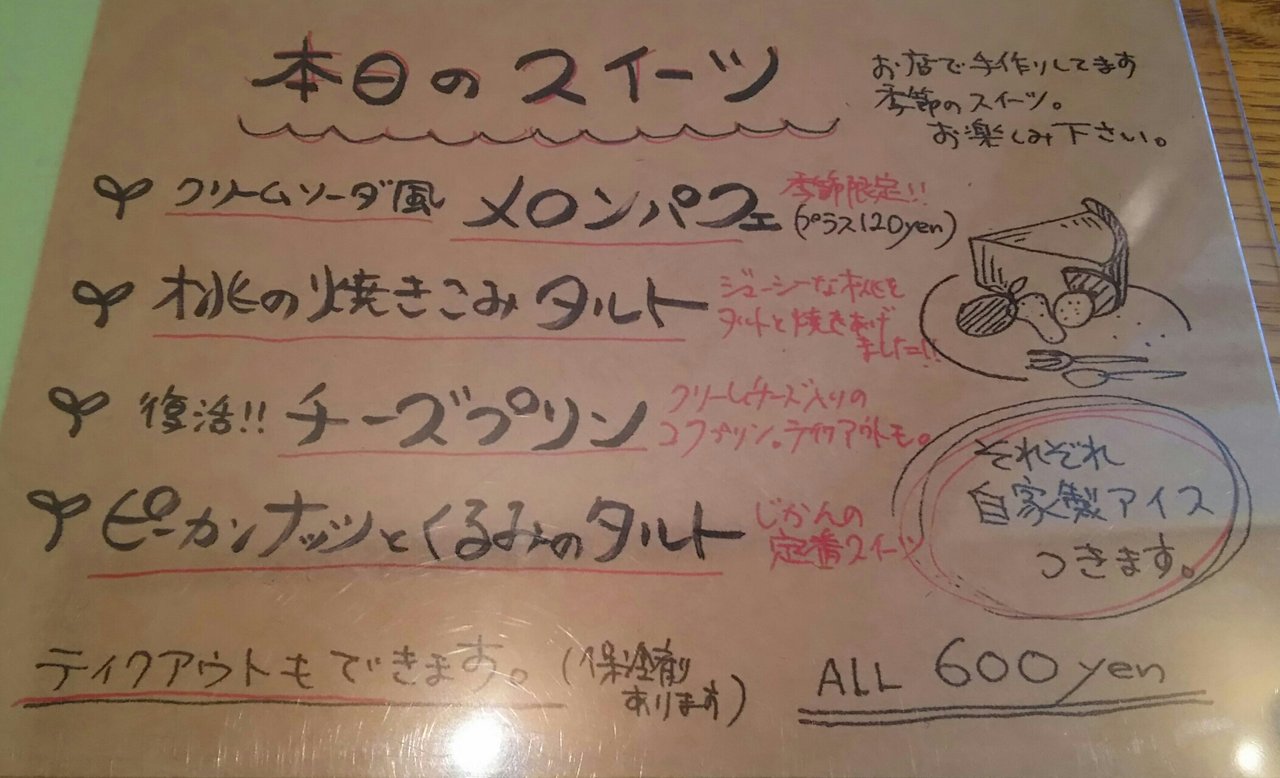 本日のスイーツ
お店で手作りしてます
季節のスイーツ。
お楽しみ下さい。
クリームソーダ風 メロンパフェ
季節限定!!
(プラス120yen)
桃の焼きこみタルト
ジューシーな桃を
タルトと焼きあげ
ました!!
復活!! チーズプリン
クリームチーズ入りの
コクプリン。テイクアウトも。
ピーカンナッツとくるみのタルト
じかんの
定番スイーツ
それぞれ
自家製アイス
つきます。
ティクアウトもできます。
(保冷剤
あります)
ALL 600yen